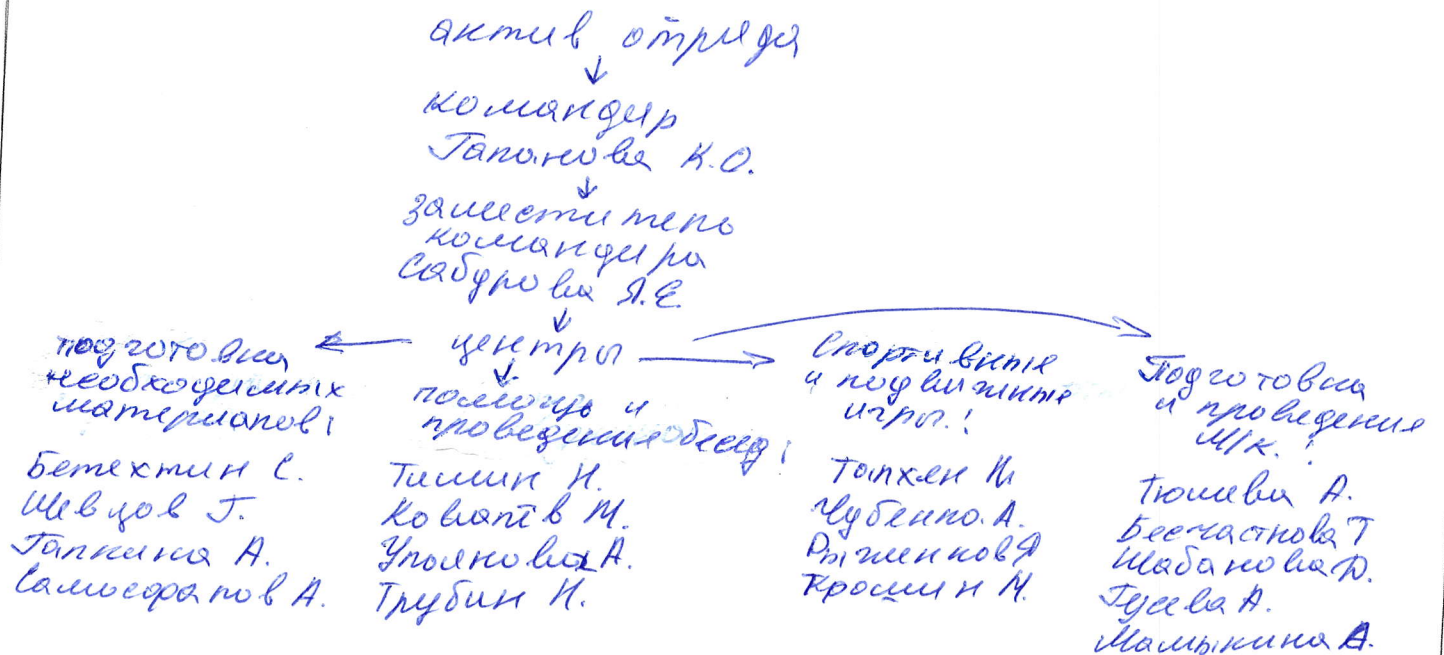 актив отряда
командир
Гапанова К.О.
заместитель
командира
Сабурова Я.Е.
центры
подготовка
необходимых
материалов:
Бетехтин С.
Шевцов Г.
Галкина А.
А.
помощь и
проведение бесед:
Тимин Н.
Ковалёв М.
Ульянова А.
Трубин Н.
Спортивные
и подвижные
игры:
Чубенко А.
Рыженков
Крошин М.
Подготовка
и проведение
М/к.:
Тюшева А.
Бесчастнова Т
Шабанова Д.
Гусева А.
Мамыкина А.